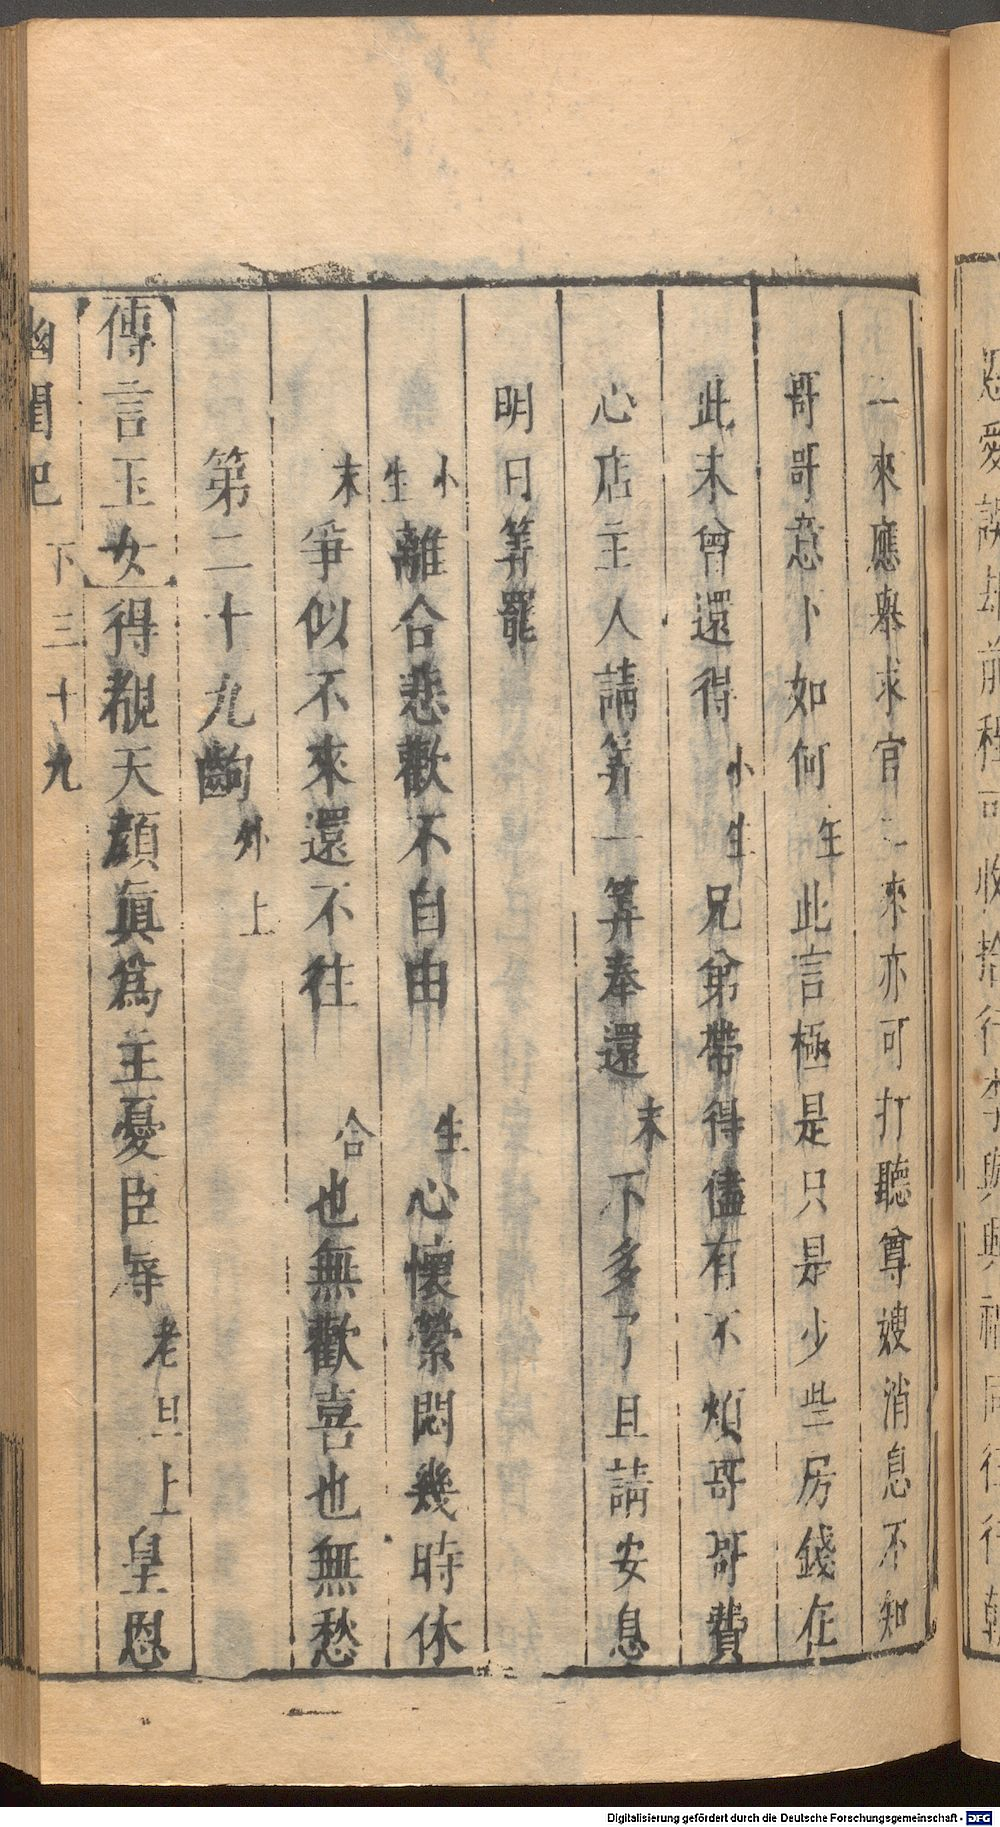 一來應舉求官二來亦可打聽尊嫂消息不知
哥哥意卜如何生此言極是只是少些房錢在
此未曾還得小生兄弟帶得儘有不煩哥哥費
心店主人請筭一筭奉還末不多了且請安息
明日筭罷
小生離合悲歡不自由 生心懷縈悶幾時休
末爭似不來還不往 合也無歡喜也無愁
第二十九齣外上
傳言玉女得覩天顔眞爲主憂臣辱老旦上皇恩
幽閨記 下三十九
Digitalisierung gefördert durch die Deutsche Forschungsgemeinschaft - DFG